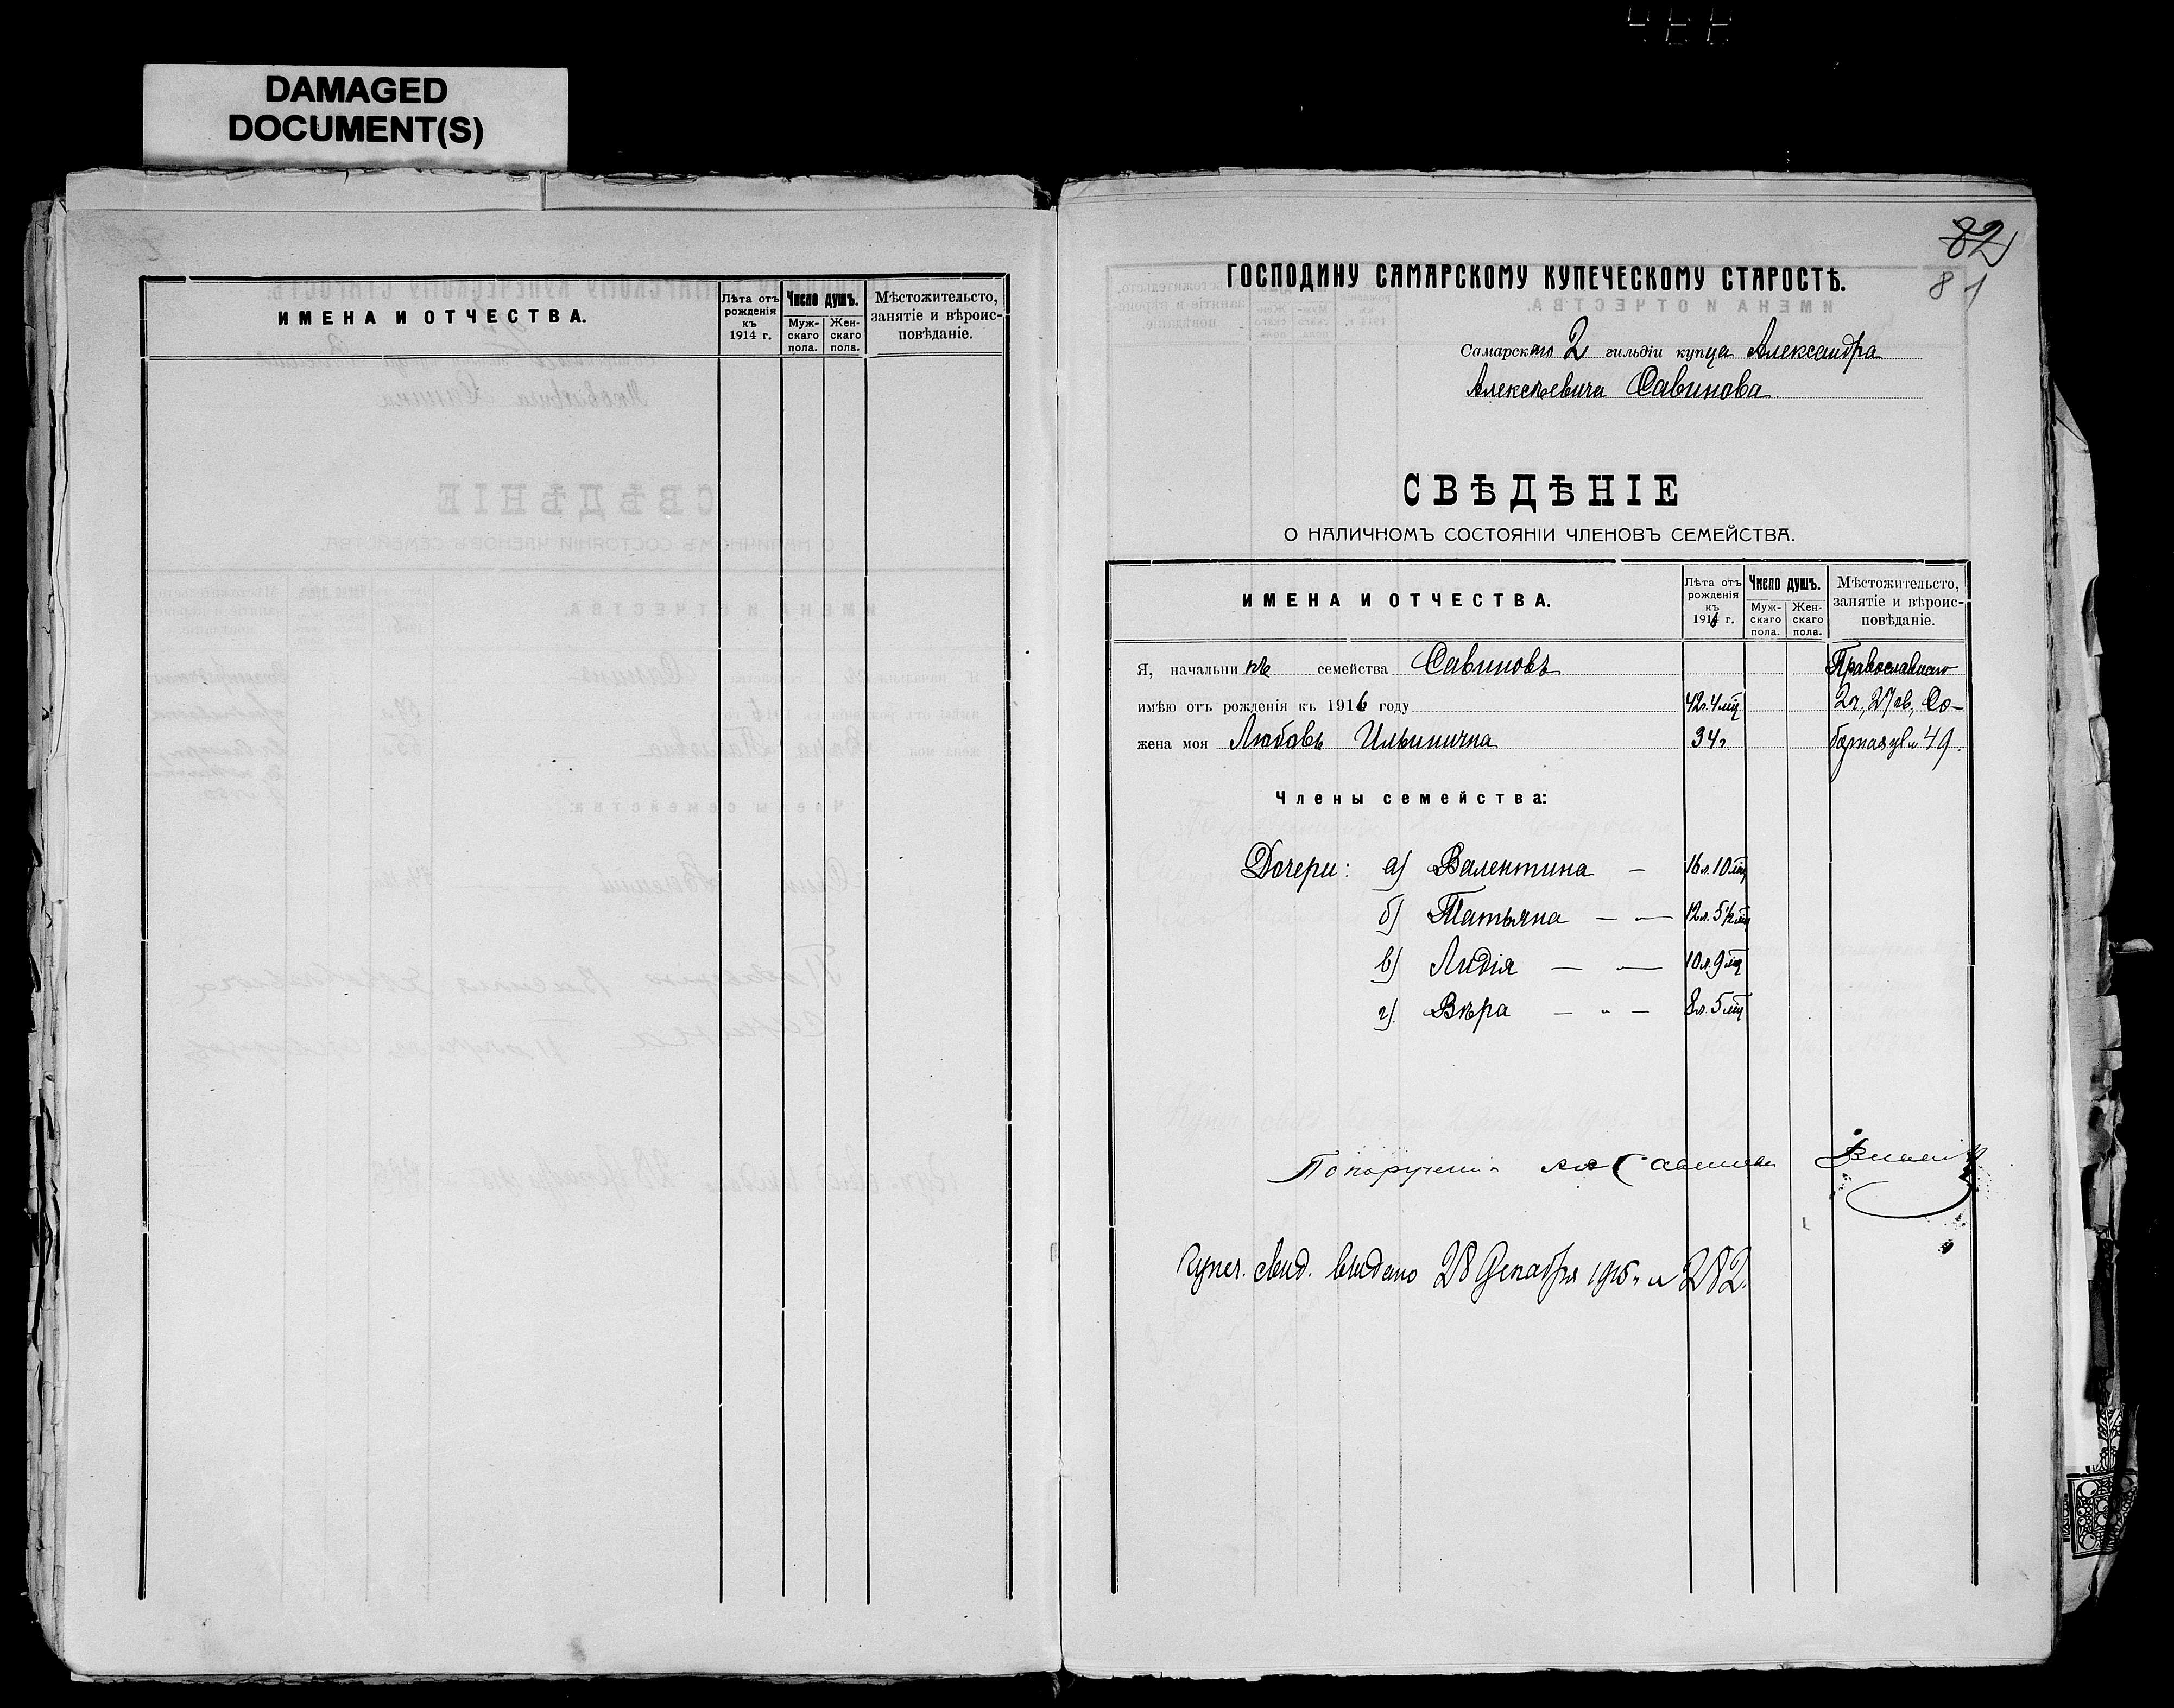 DAMAGED
DOCUMENT(S)
ИМЕНА И ОТЧЕСТВА.
Лѣта отъ рожденія къ 1914 г.
Число душъ.
Муж-скаго пола.
Жен-скаго пола.
Мѣстожительсто, занятіе и вѣроис-повѣданіе.
82
81
ГОСПОДИНУ САМАРСКОМУ КУПЕЧЕСКОМУ СТАРОСТѢ.
Самарскаго 2 гильдіи купца Александра
Алексѣевича Савинова.
СВѢДѢНІЕ
О НАЛИЧНОМЪ СОСТОЯНІИ ЧЛЕНОВЪ СЕМЕЙСТВА.
ИМЕНА И ОТЧЕСТВА.
Лѣта отъ рожденія къ 1916 г.
Число душъ.
Муж-скаго пола.
Жен-скаго пола.
Мѣстожительсто, занятіе и вѣроис-повѣданіе.
Я, начальникъ семейства Савиновъ Православнаго
имѣю отъ рожденія къ 1916 году 42л. 4 мц 2ч., 27кв., Со-
жена моя Любовь Ильинична 34г. борная ул № 49.
Члены семейства:
Дочери: а) Валентина — 16л. 10 мц
б) Татьяна — „ — 12л. 5½ мц
в) Лидія — „ — 10л. 9 мц
г) Вѣра — „ — 8л. 5 мц
По порученію
Купеч. свид. выдано 28 Декабря 1915 г. № 282.